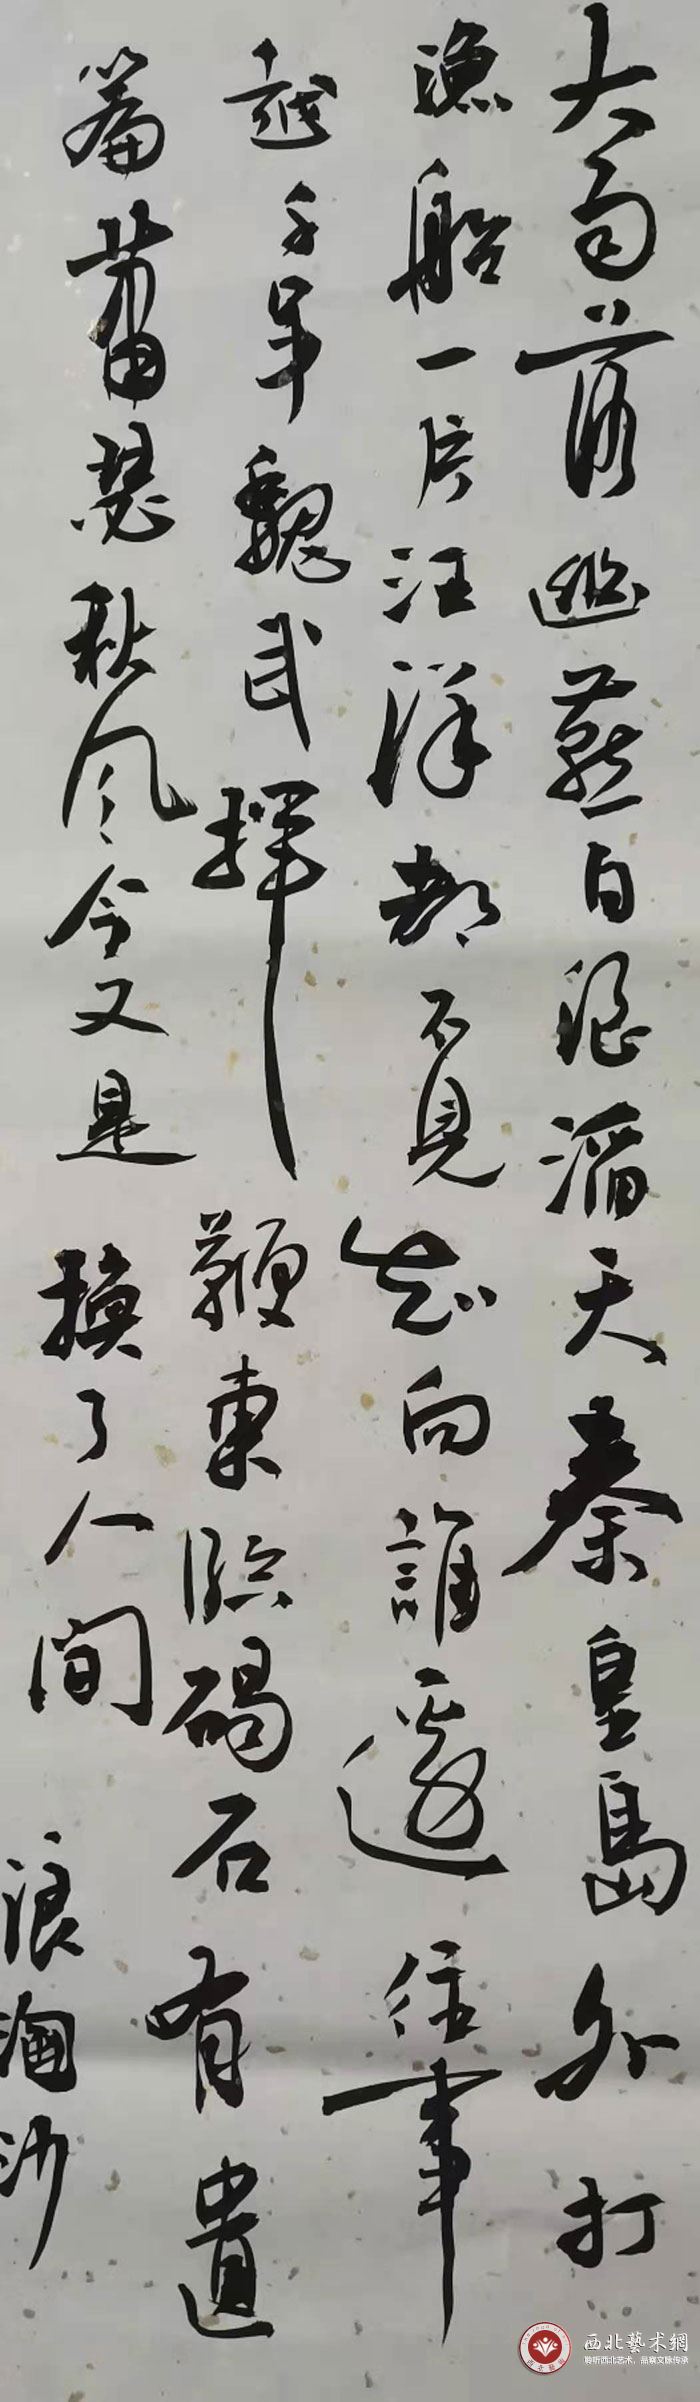 大雨落幽燕白浪滔天秦皇島外打
漁船一片汪洋都不見知向誰邊往事
越千年魏武揮鞭東臨碣石有遺
篇蕭瑟秋風今又是換了人間
浪淘沙
西北藝术網
聆听西北艺术，品察文脉传承